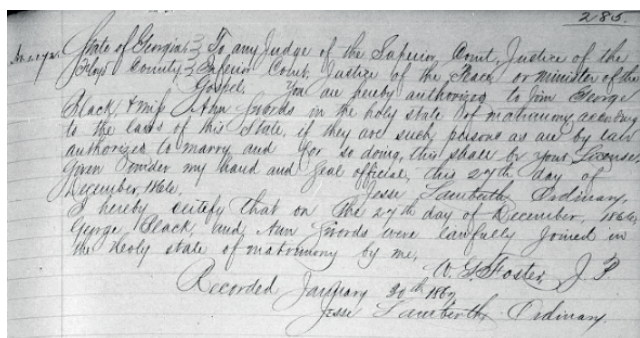 285.
State of Georgia } To any Judge of the Superior Court, Justice of the
Floyd County } Inferior Court, Justice of the Peace or minister of the
Gospel. You are hereby authorized to Join George
Black, & miss Ann Swords in the holy state of matrimony according
to the laws of this State, if they are such persons as are by law
authorized to marry and for so doing, this shall be your License,
Given under my hand and Seal official, this 27th day of
December, 1866. Jesse Lamberth Ordinary.
I hereby certify that on the 27th day of December, 1866,
George Black and Ann Swords were lawfully Joined in
the Holy state of matrimony by me,
W. S. Foster, J. P
Recorded January 30th 1867
Jesse Lamberth Ordinary.